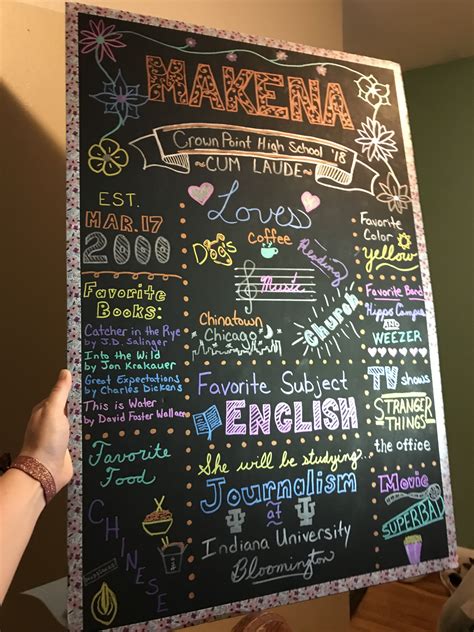 MAKENA
Crown Point High School '18
~CUM LAUDE~
EST.
MAR. 17
2000
Favorite
Books:
Catcher in the Rye
by J.D. Salinger
Into the Wild
by Jon Krakauer
Great Expectations
by Charles Dickens
This is Water
by David Foster Wallace
Favorite
Food
CHINESE
Loves
Dogs
Coffee
Reading
Music
Chinatown
Chicago
Church
Favorite Subject
ENGLISH
She will be studying...
Journalism
at
Indiana University
Bloomington
Favorite
Color
Yellow
Favorite Band
Hippo Campus
AND
WEEZER
TV shows
STRANGER
THINGS
the office
Movie
SUPERBAD